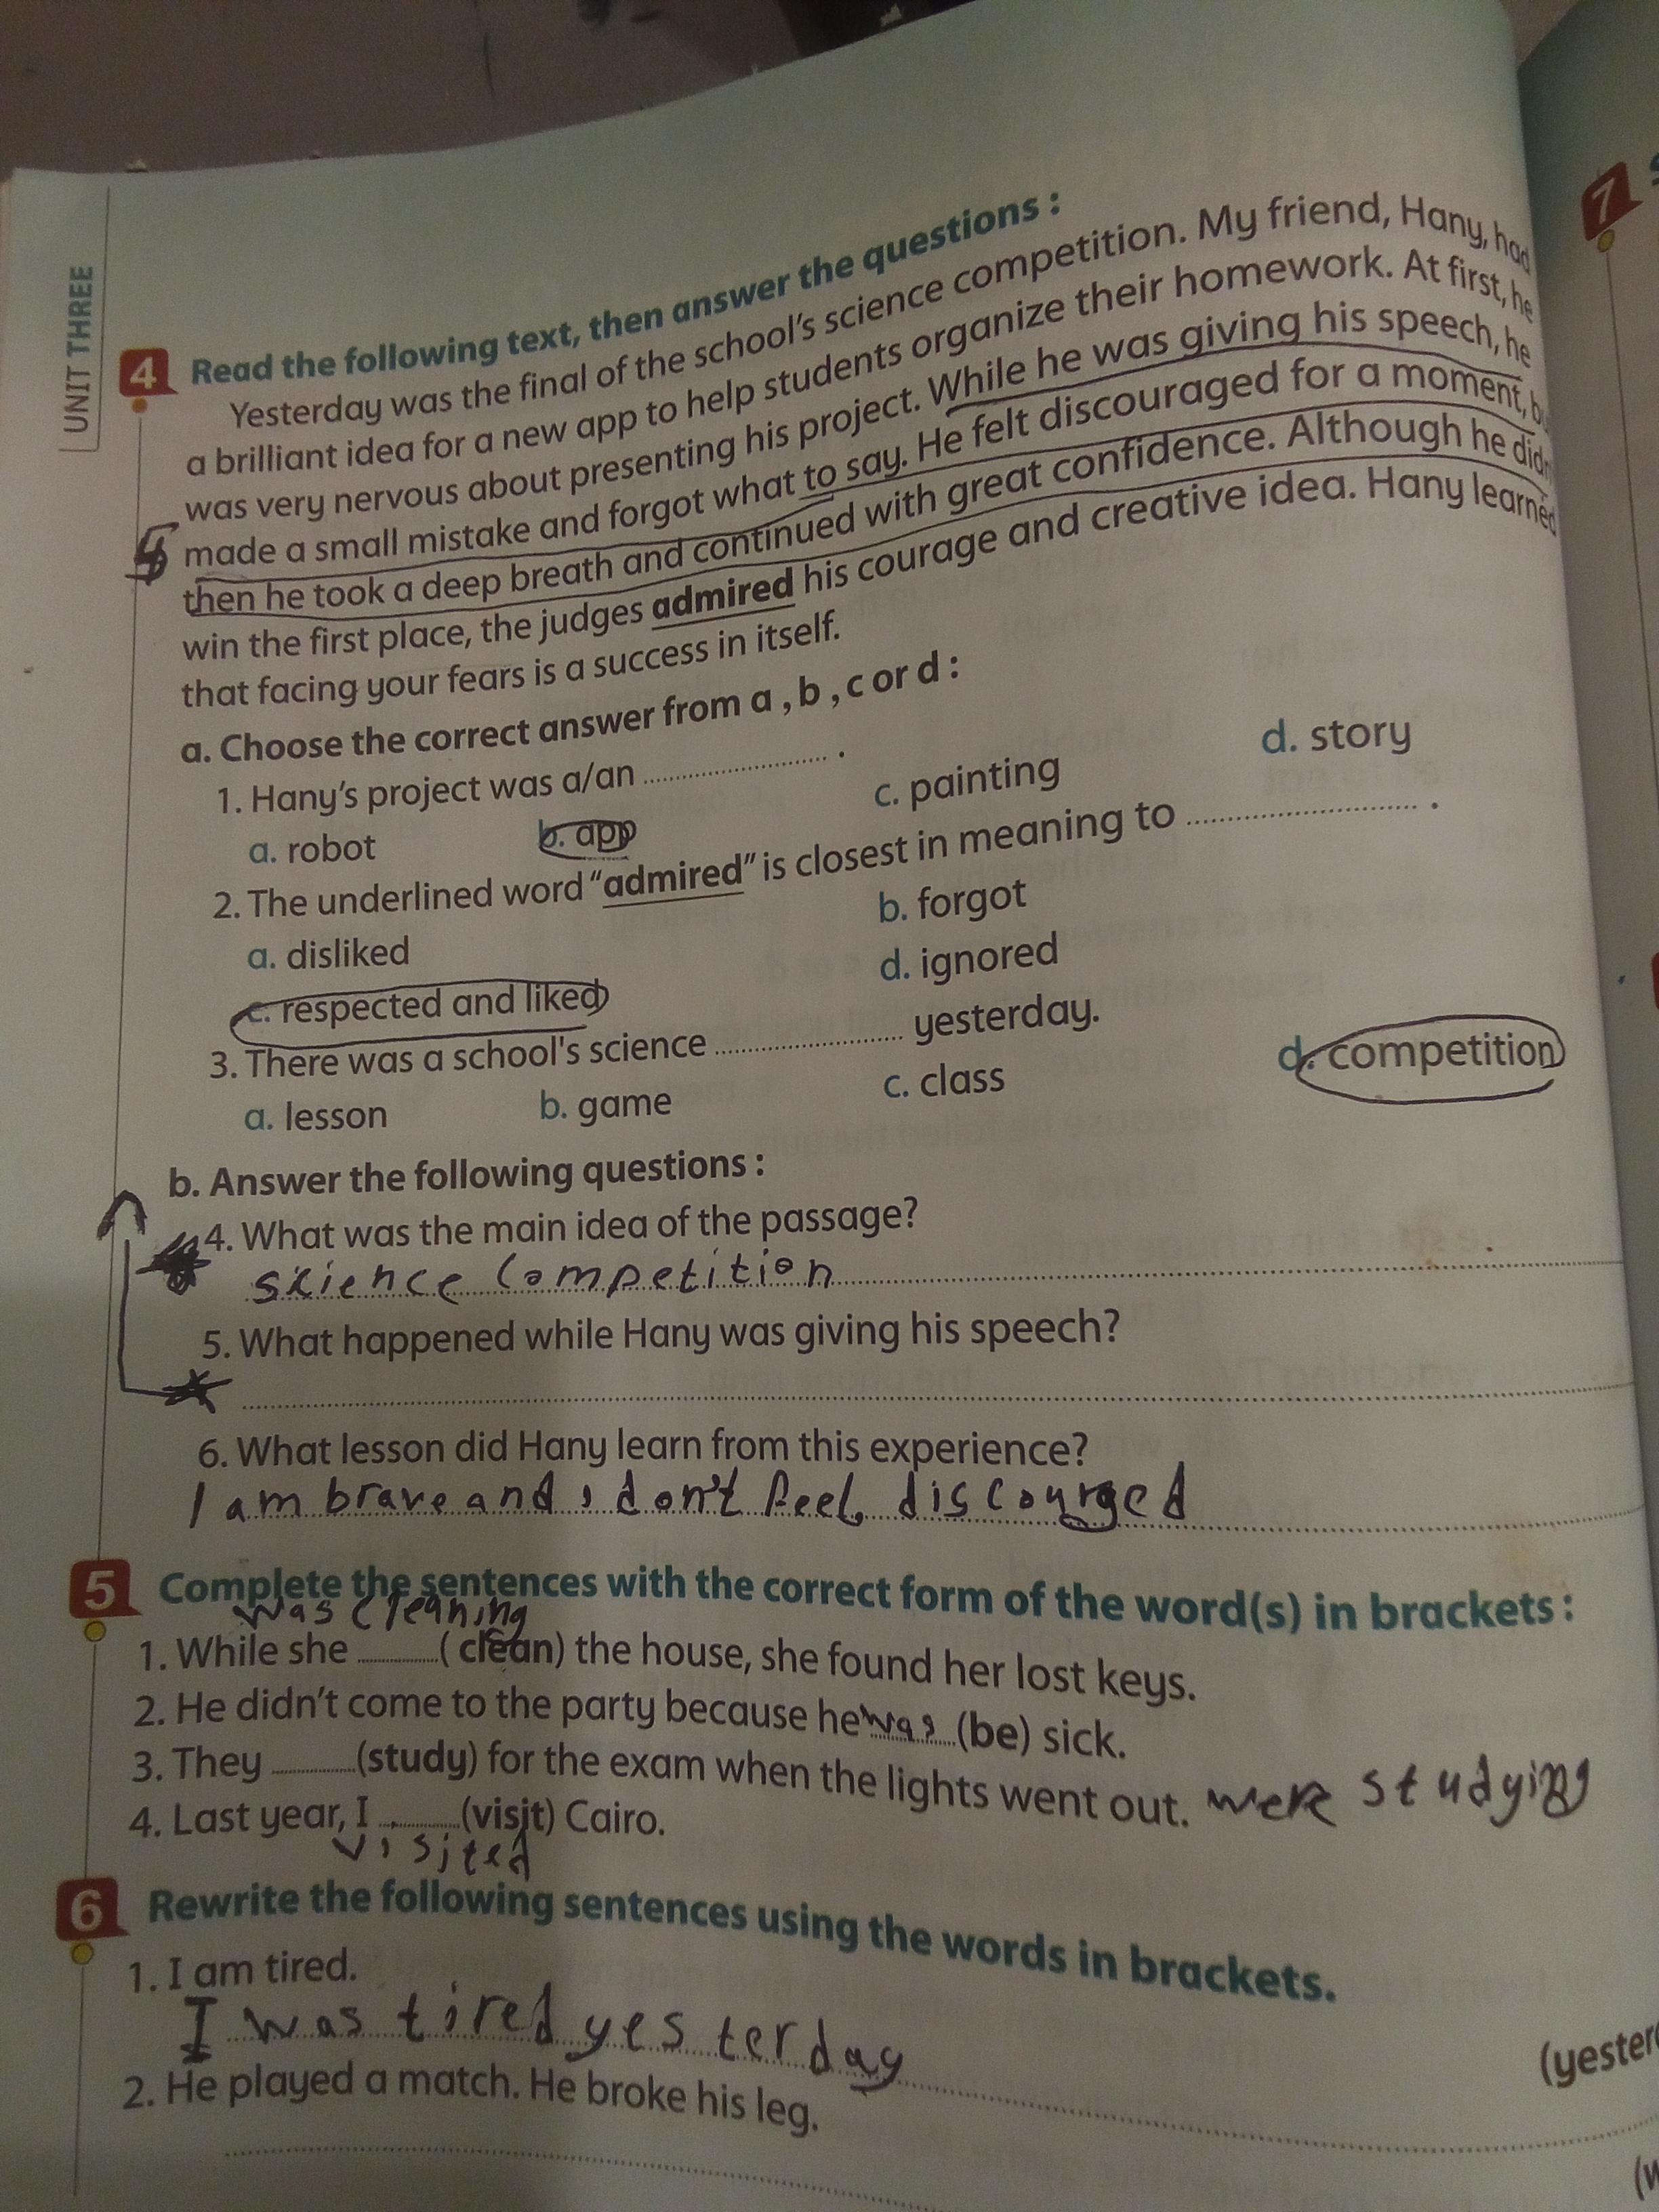 UNIT THREE
4 Read the following text, then answer the questions :
Yesterday was the final of the school's science competition. My friend, Hany, had
a brilliant idea for a new app to help students organize their homework. At first, he
was very nervous about presenting his project. While he was giving his speech, he
made a small mistake and forgot what to say. He felt discouraged for a moment,
then he took a deep breath and continued with great confidence. Although he
win the first place, the judges admired his courage and creative idea. Hany learned
that facing your fears is a success in itself.
5
a. Choose the correct answer from a , b , c or d :
1. Hany's project was a/an .................... .
a. robot b. app c. painting d. story
2. The underlined word "admired" is closest in meaning to .................... .
a. disliked b. forgot
c. respected and liked d. ignored
3. There was a school's science .................... yesterday.
a. lesson b. game c. class d. competition
b. Answer the following questions :
4. What was the main idea of the passage?
science competition
5. What happened while Hany was giving his speech?
6. What lesson did Hany learn from this experience?
I am brave and I don't feel discourged
5 Complete the sentences with the correct form of the word(s) in brackets :
was cleaning
1. While she ..........( clean) the house, she found her lost keys.
2. He didn't come to the party because he was (be) sick.
3. They ..........(study) for the exam when the lights went out. were studying
4. Last year, I ..........(visit) Cairo.
visited
6 Rewrite the following sentences using the words in brackets.
1. I am tired.
I was tired yesterday
2. He played a match. He broke his leg.
7